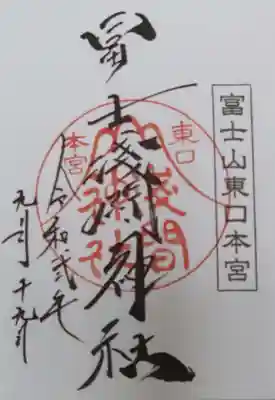 富士山東口本宮
冨士浅間神社
東口
本宮
浅間神社
令和弐年
九月十九日